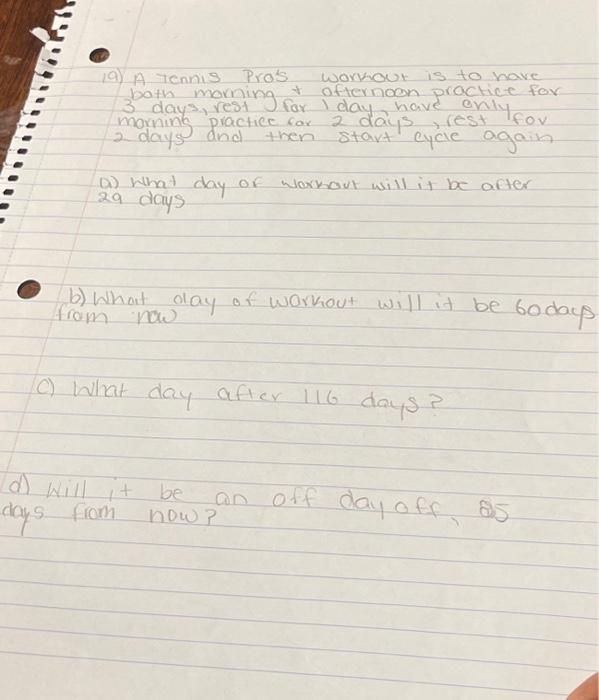 19) A Tennis Pro's workout is to have
both morning + afternoon practice for
3 days, rest for 1 day, have only
morning practice for 2 days, rest for
2 days and then start cycle again
a) What day of workout will it be after
29 days
b) What day of workout will it be 60 days
from now
c) What day after 116 days?
d) Will it be an off day off, 85
days from now?